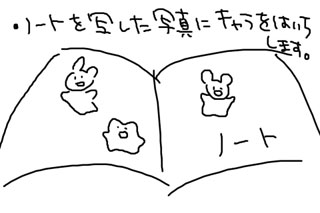 ・ノートを写した写真にキャラをはいち
します。
ノート